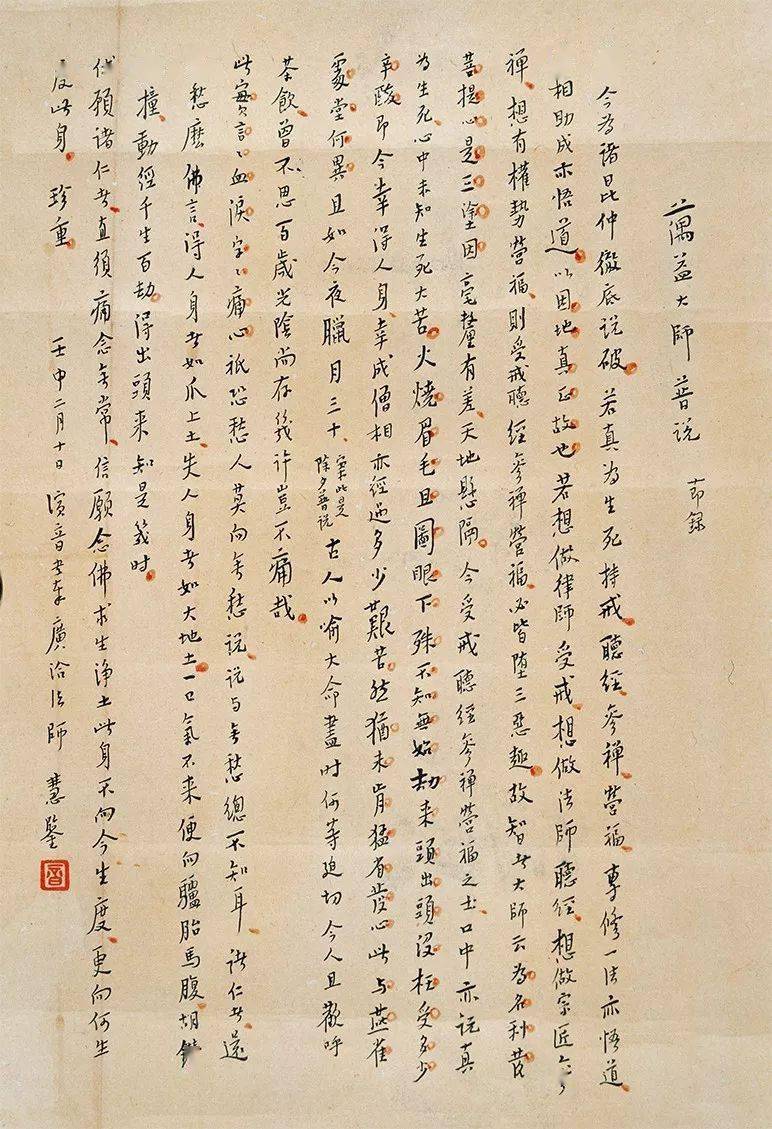 蕅益大師普说 节録
今為諸昆仲徹底说破若真為生死持戒聽經參禅营福專修一法亦悟道
相助成亦悟道以因地真正故也若想做律师受戒想做法師聽經想做宗匠參
禅想有權势营福則受戒聽經參禅营福必皆堕三惡趣故智者大师云為名利發
菩提心是三塗因毫釐有差天地懸隔今受戒聽經參禅营福之士口中亦说真
為生死心中未知生死大苦火燒眉毛且圖眼下殊不知無始劫来頭出頭没枉受多少
辛酸即今幸得人身幸成僧相亦經過多少艱苦然猶未肯猛省發心此与燕雀
處堂何異且如今夜臘月三十案此是除夕普说古人以喻大命盡时何等迫切今人且歡呼
茶飲曾不思百歲光陰尚存幾许豈不痛哉
此實言言血淚字字痛心祇恐愁人莫向无愁说说与无愁總不知耳諸仁者還
愁麽佛言得人身者如爪上土失人身者如大地土一口氣不来便向驢胎馬腹胡鑽
撞動經千生百劫得出頭来知是幾时
伏願諸仁者直须痛念无常信願念佛求生浄土此身不向今生度更向何生
度此身 珍重 壬申二月十日演音书奉廣洽法师慧鑒
音